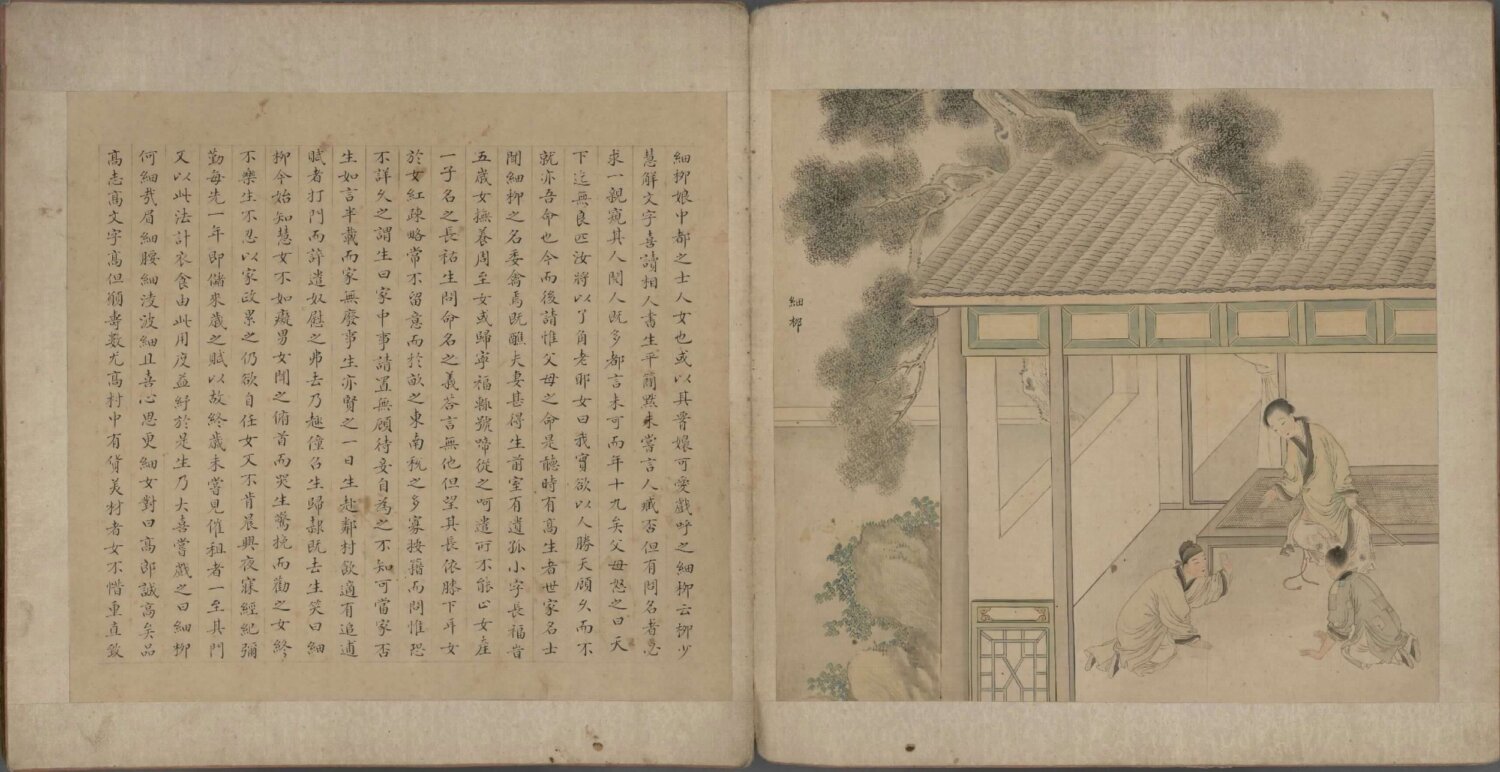 細柳
細柳娘中都之士人女也或以其嬝可愛戲呼之細柳云柳少
慧解文字喜讀相人書生平簡默未嘗言人臧否但有問名者必
求一親窺其人閱人既多都言未可而年十九矣父母怒之曰天
下迄無良匹汝將以丫角老耶女曰我實欲以人勝天顧久而不
就亦吾命也今而後請惟父母之命是聽時有高生者世家名士
聞細柳之名委禽焉既醮夫妻甚得生前室有遺孤小字長福昔
五歲女撫養周至女或歸寧福輒號啼從之呵遣所不能止女產
一子名之長祜生問命名之義答言無他但望其長依膝下耳女
於女紅疎略常不留意而於畝之東南稅之多寡按籍而問惟恐
不詳久之謂生曰家中事請置無顧待妾自為之不知可當家否
生如言半載而家無廢事生亦賢之一日生赴鄰村飲適有追逋
賦者打門而誶遣奴慰之弗去乃趨僮召生歸隸既去生笑曰細
柳今始知慧女不如癡男女聞之俯首而哭生驚挽而勸之女終
不樂生不忍以家政累之仍欲自任女又不肯晨興夜寐經紀彌
勤每先一年即儲來歲之賦以故終歲未嘗見催租者一至其門
又以此法計衣食由此用度益紓於是生乃大喜嘗戲之曰細柳
何細哉眉細腰細淩波細且喜心思更細女對曰高郎誠高矣品
高志高文字高但願壽數尤高村中有貨美材者女不惜重直致